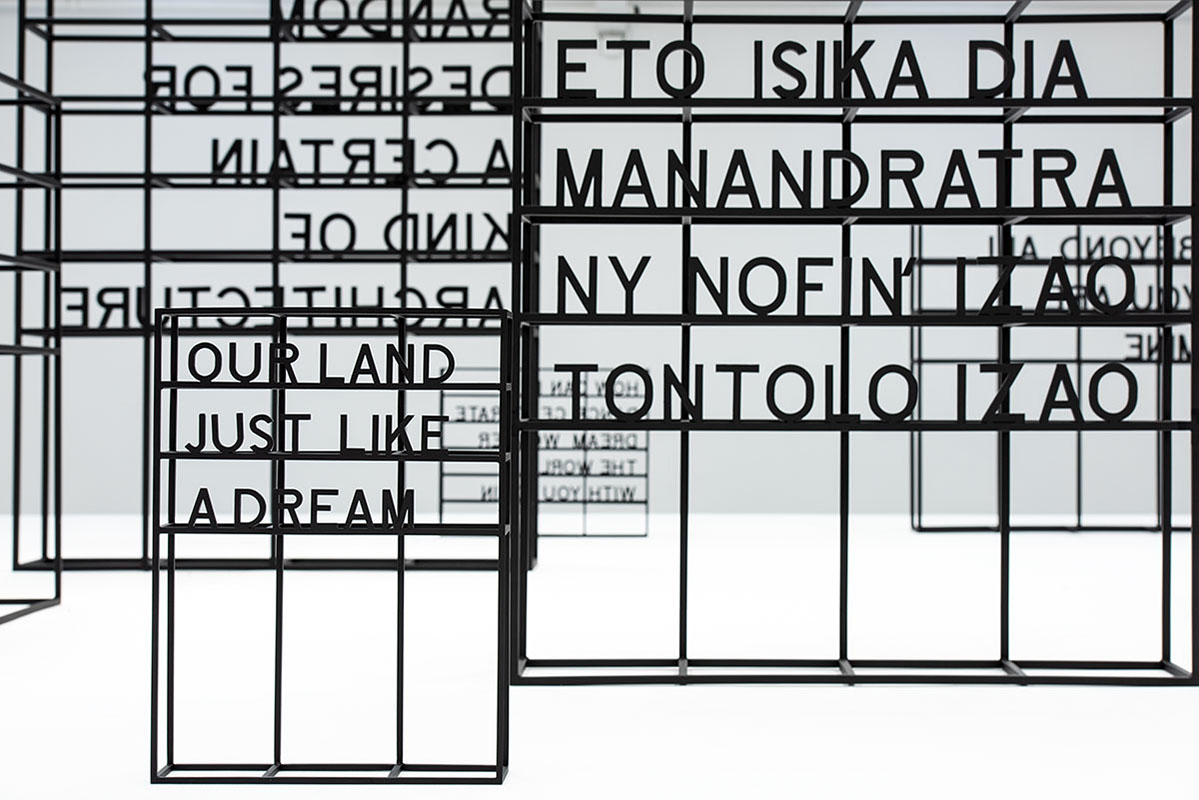 RANDOM
DESIRES FOR
A CERTAIN
KIND OF
ARCHITECTURE
OUR LAND
JUST LIKE
A DREAM
ETO ISIKA DIA
MANANDRATRA
NY NOFIN' IZAO
TONTOLO IZAO
HOW CAN
DREAM
THE
WITH YOU
BEYOND ALL
YOU ARE
MINE